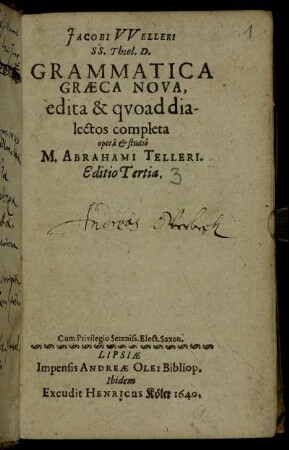 1
JACOBI VVELLERI
SS. Theol. D.
GRAMMATICA
GRÆCA NOVA,
edita & qvoad dia-
lectos completa
operâ & studiô
M. ABRAHAMI TELLERI.
Editio Tertia. 3
Andreas
Cum Privilegio Sereniss. Elect. Saxon.
LIPSIÆ
Impensis ANDREÆ OLEI Bibliop.
Ibidem
Excudit HENRICUS Köler 1640.